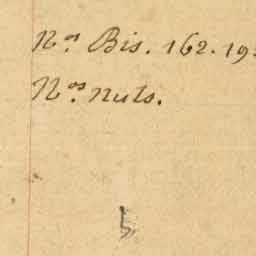 Nos Bis. 162. 19
Nos nuts.
b